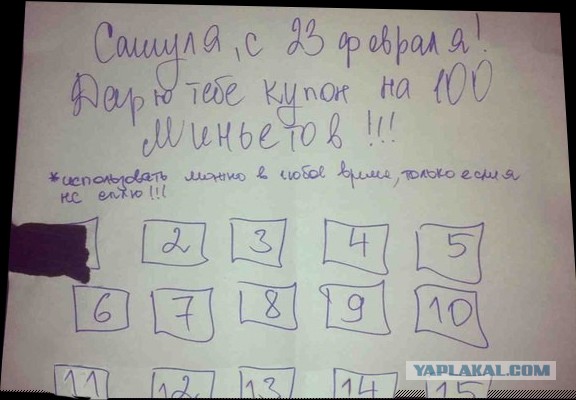 Сашуля, с 23 февраля!
Дарю тебе купон на 100
Миньетов!!!
*использовать можно в любое время, только если я
не сплю!!!
2 3 4 5
6 7 8 9 10
11 12 13 14 15
YAPLAKAL.COM